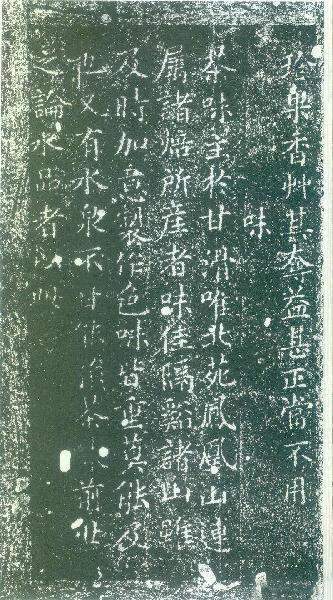 珍果香艸其奪益甚正當不用
味
茶味主於甘滑唯北苑鳳凰山連
屬諸焙所產者味佳隔谿諸山雖
及時加意製作色味皆重莫能及
也又有水泉不甘能損茶味前世
之論水品者以此